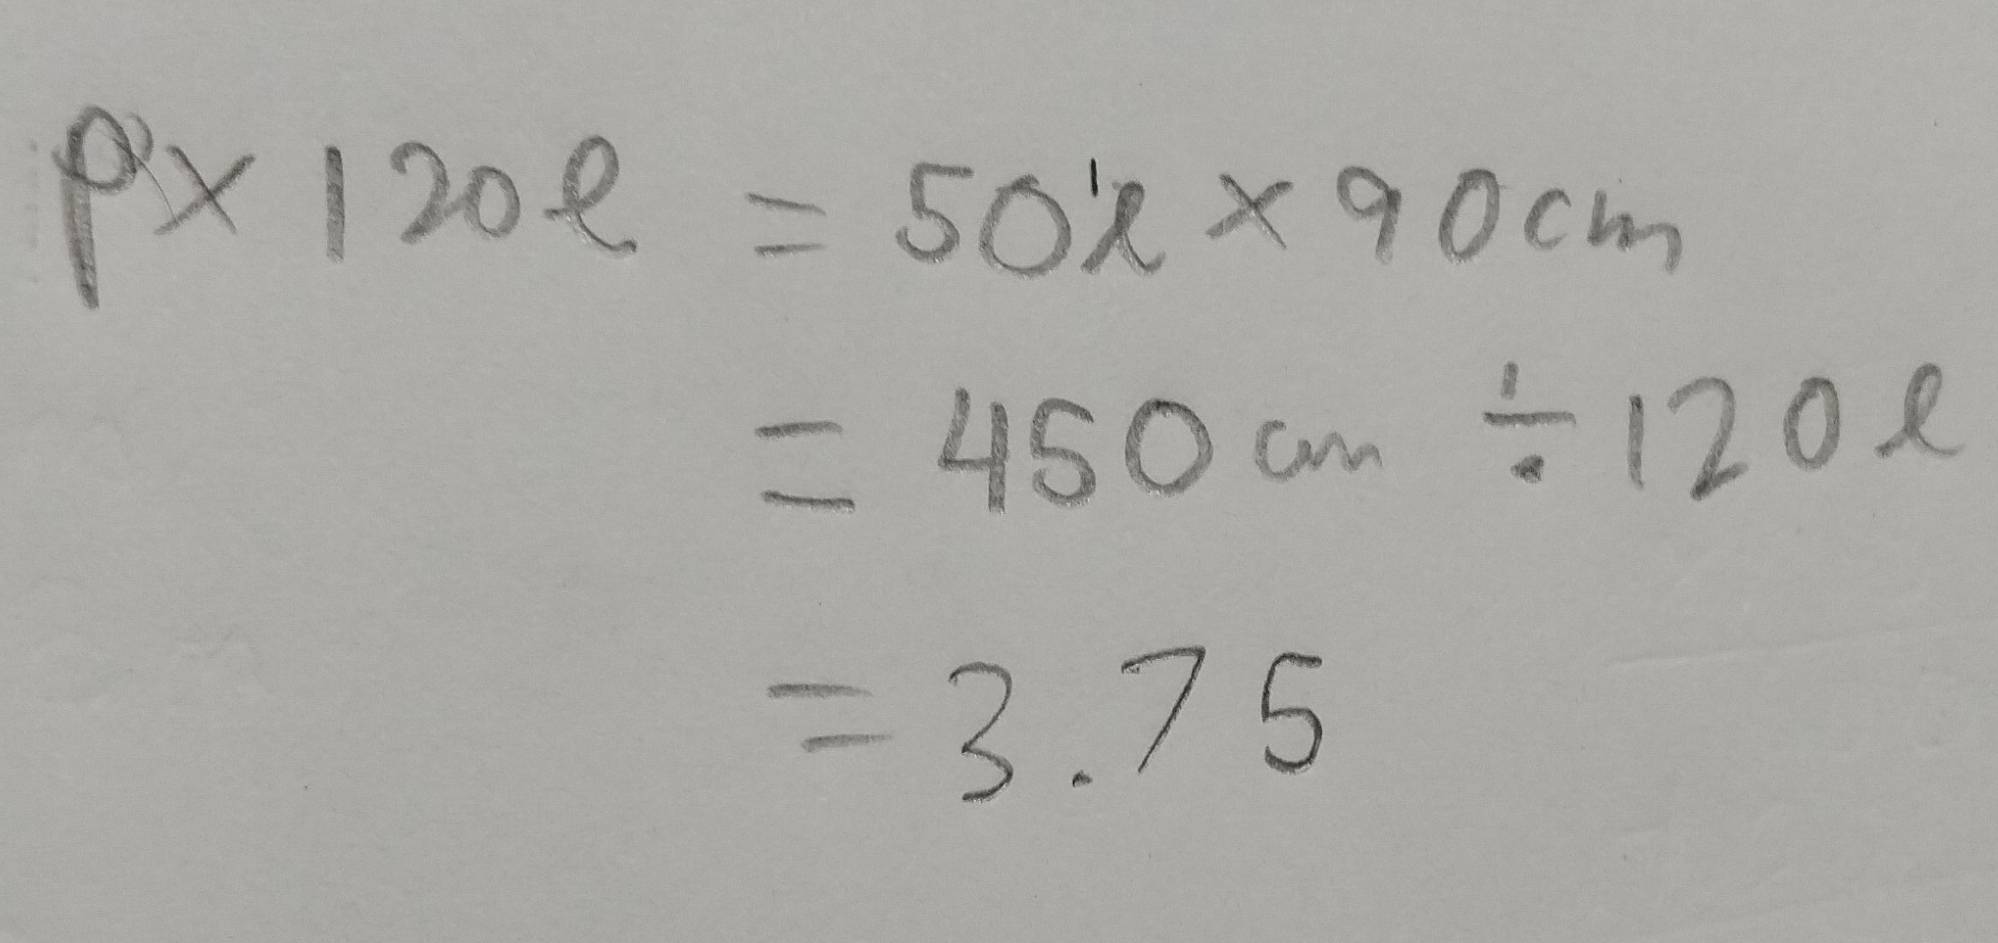 P x 120l = 50l x 90cm
= 450 cm ÷ 120 l
= 3.75